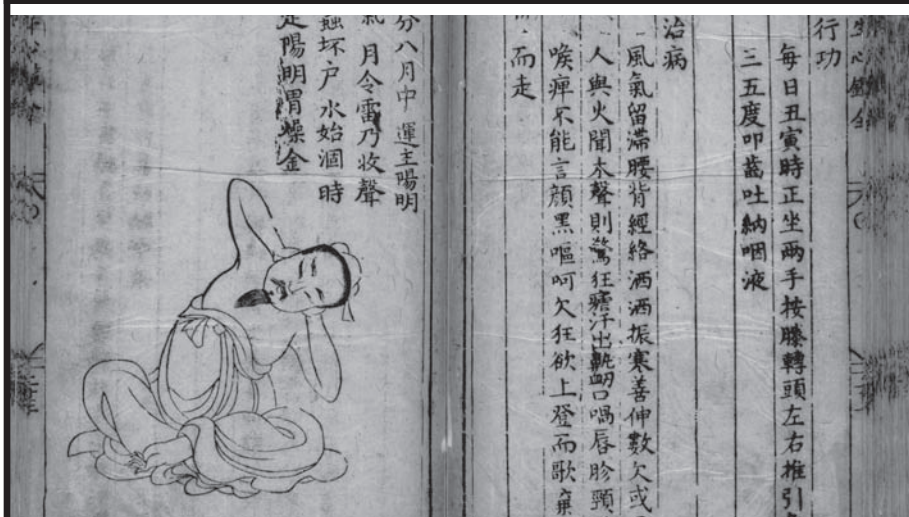 行功
每日丑寅時正坐兩手按膝轉頭左右推引
三五度叩齒吐納咽液
治病
風氣留滯腰背經絡洒洒振寒善伸數欠或
人與火聞木聲則驚狂瘧汗出鼽衂口喎唇胗頸
喉痺不能言顏黑嘔呵欠狂欲上登而歌棄
而走
分八月中 運主陽明
氣 月令雷乃收聲
蟲坏户 水始涸 時
足陽明胃燥金